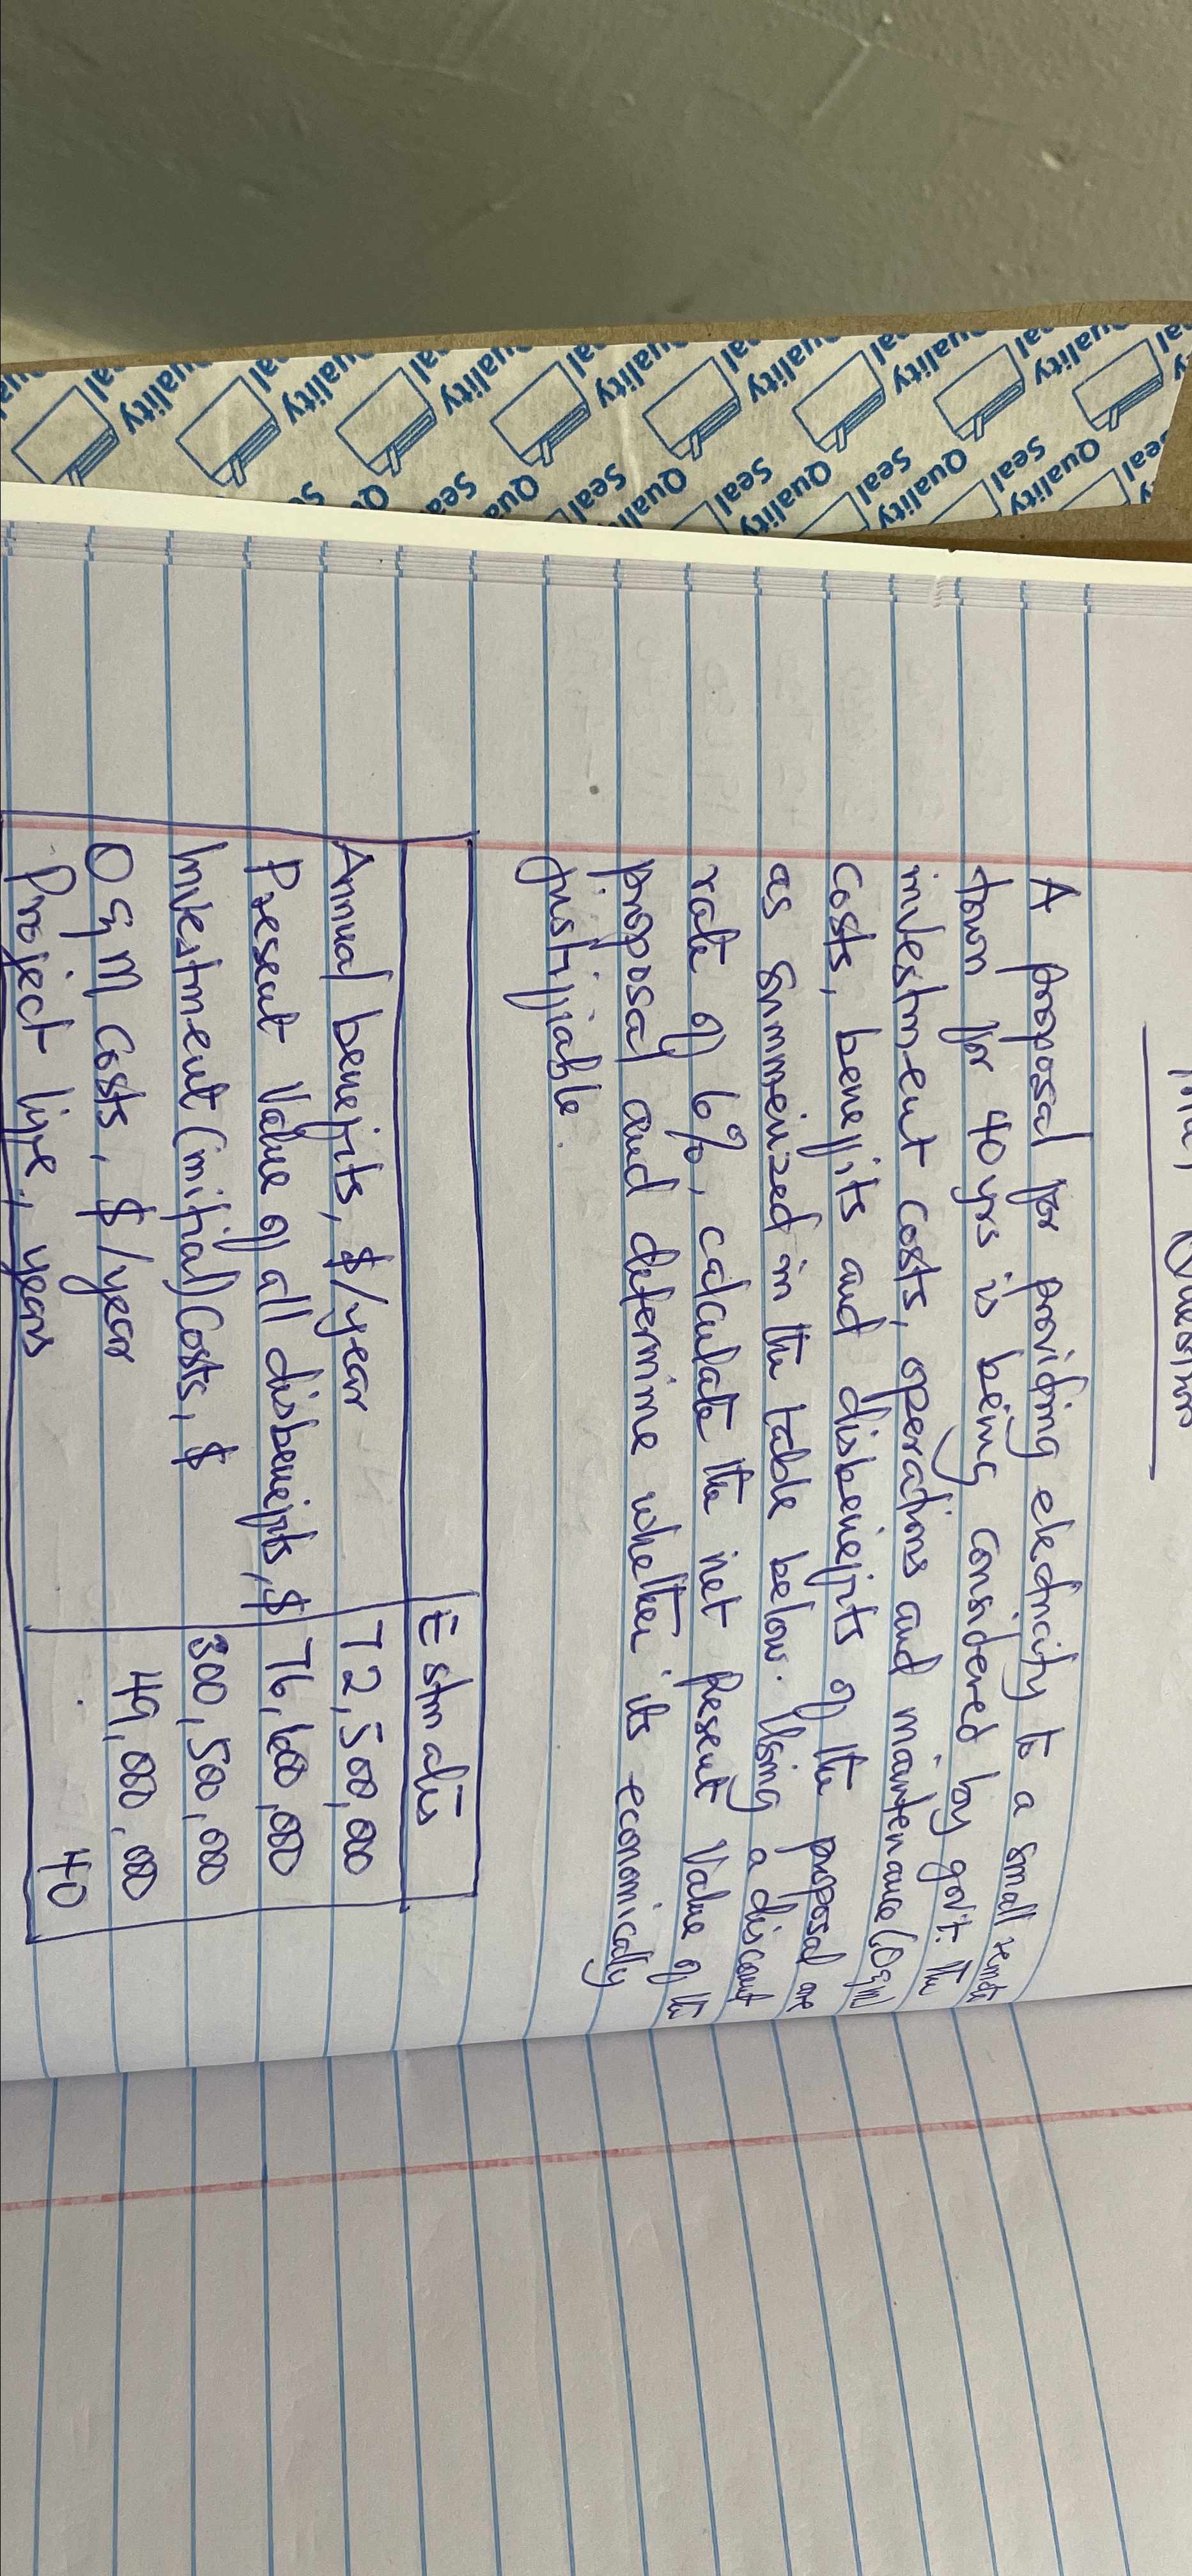 A proposal for providing electricity to a small remote
town for 40 yrs is being considered by gov't. The
investment costs, operations and maintenance (O & M)
costs, benefits and disbenefits of the proposal are
as summerized in the table below. Using a discount
rate of 6%, calculate the net Present Value of the
proposal and determine whether its economically
justifiable.
Estimates
Annual benefits, $/year 72,500,000
Present Value of all disbenefits, $ 76,600,000
Investment (initial) Costs, $ 300,500,000
O & M Costs, $/year 49,000,000
Project life, years 40
Quality
Seal